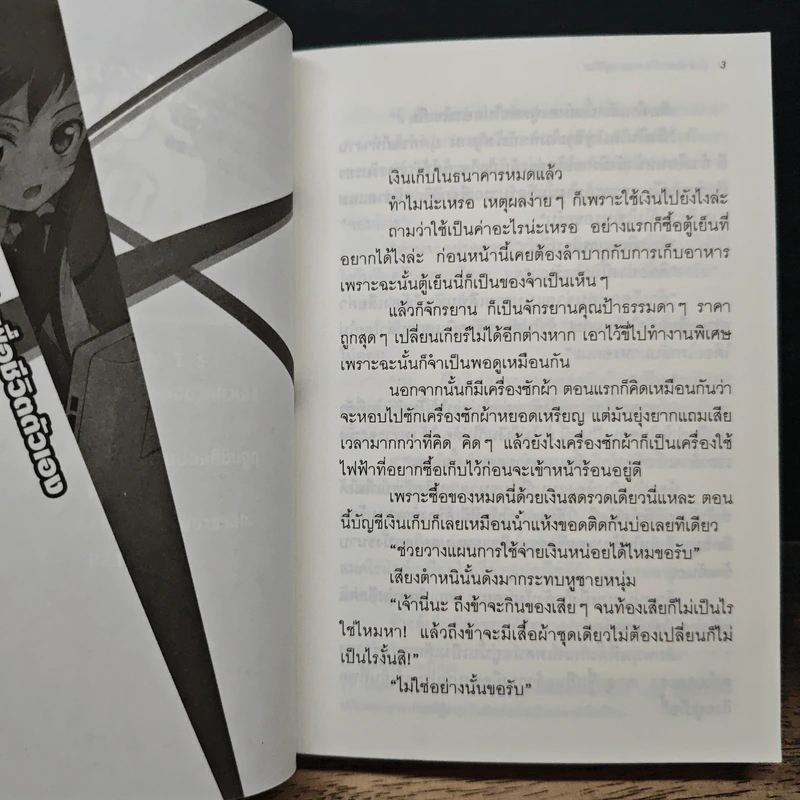 3
เงินเก็บในธนาคารหมดแล้ว
ทำไมน่ะเหรอ เหตุผลง่ายๆ ก็เพราะใช้เงินไปยังไงล่ะ
ถามว่าใช้เป็นค่าอะไรน่ะเหรอ อย่างแรกก็ซื้อตู้เย็นที่
อยากได้ไงล่ะ ก่อนหน้านี้เคยต้องลำบากกับการเก็บอาหาร
เพราะฉะนั้นตู้เย็นนี่ก็เป็นของจำเป็นเห็นๆ
แล้วก็จักรยาน ก็เป็นจักรยานคุณป้าธรรมดาๆ ราคา
ถูกสุดๆ เปลี่ยนเกียร์ไม่ได้อีกต่างหาก เอาไว้ขี่ไปทำงานพิเศษ
เพราะฉะนั้นก็จำเป็นพอดูเหมือนกัน
นอกจากนั้นก็มีเครื่องซักผ้า ตอนแรกก็คิดเหมือนกันว่า
จะหอบไปซักเครื่องซักผ้าหยอดเหรียญ แต่มันยุ่งยากแถมเสีย
เวลามากกว่าที่คิด คิดๆ แล้วยังไงเครื่องซักผ้าก็เป็นเครื่องใช้
ไฟฟ้าที่อยากซื้อเก็บไว้ก่อนจะเข้าหน้าร้อนอยู่ดี
เพราะซื้อของหมดนี่ด้วยเงินสดรวดเดียวนี่แหละ ตอน
นี้บัญชีเงินเก็บก็เลยเหมือนน้ำแห้งขอดติดก้นบ่อเลยทีเดียว
“ช่วยวางแผนการใช้จ่ายเงินหน่อยได้ไหมขอรับ”
เสียงตำหนินั้นดังมากระทบหูชายหนุ่ม
“เจ้านี่นะ ถึงข้าจะกินของเสียๆ จนท้องเสียก็ไม่เป็นไร
ใช่ไหมหา! แล้วถึงข้าจะมีเสื้อผ้าชุดเดียวไม่ต้องเปลี่ยนก็ไม่
เป็นไรงั้นสิ!”
“ไม่ใช่อย่างนั้นขอรับ”